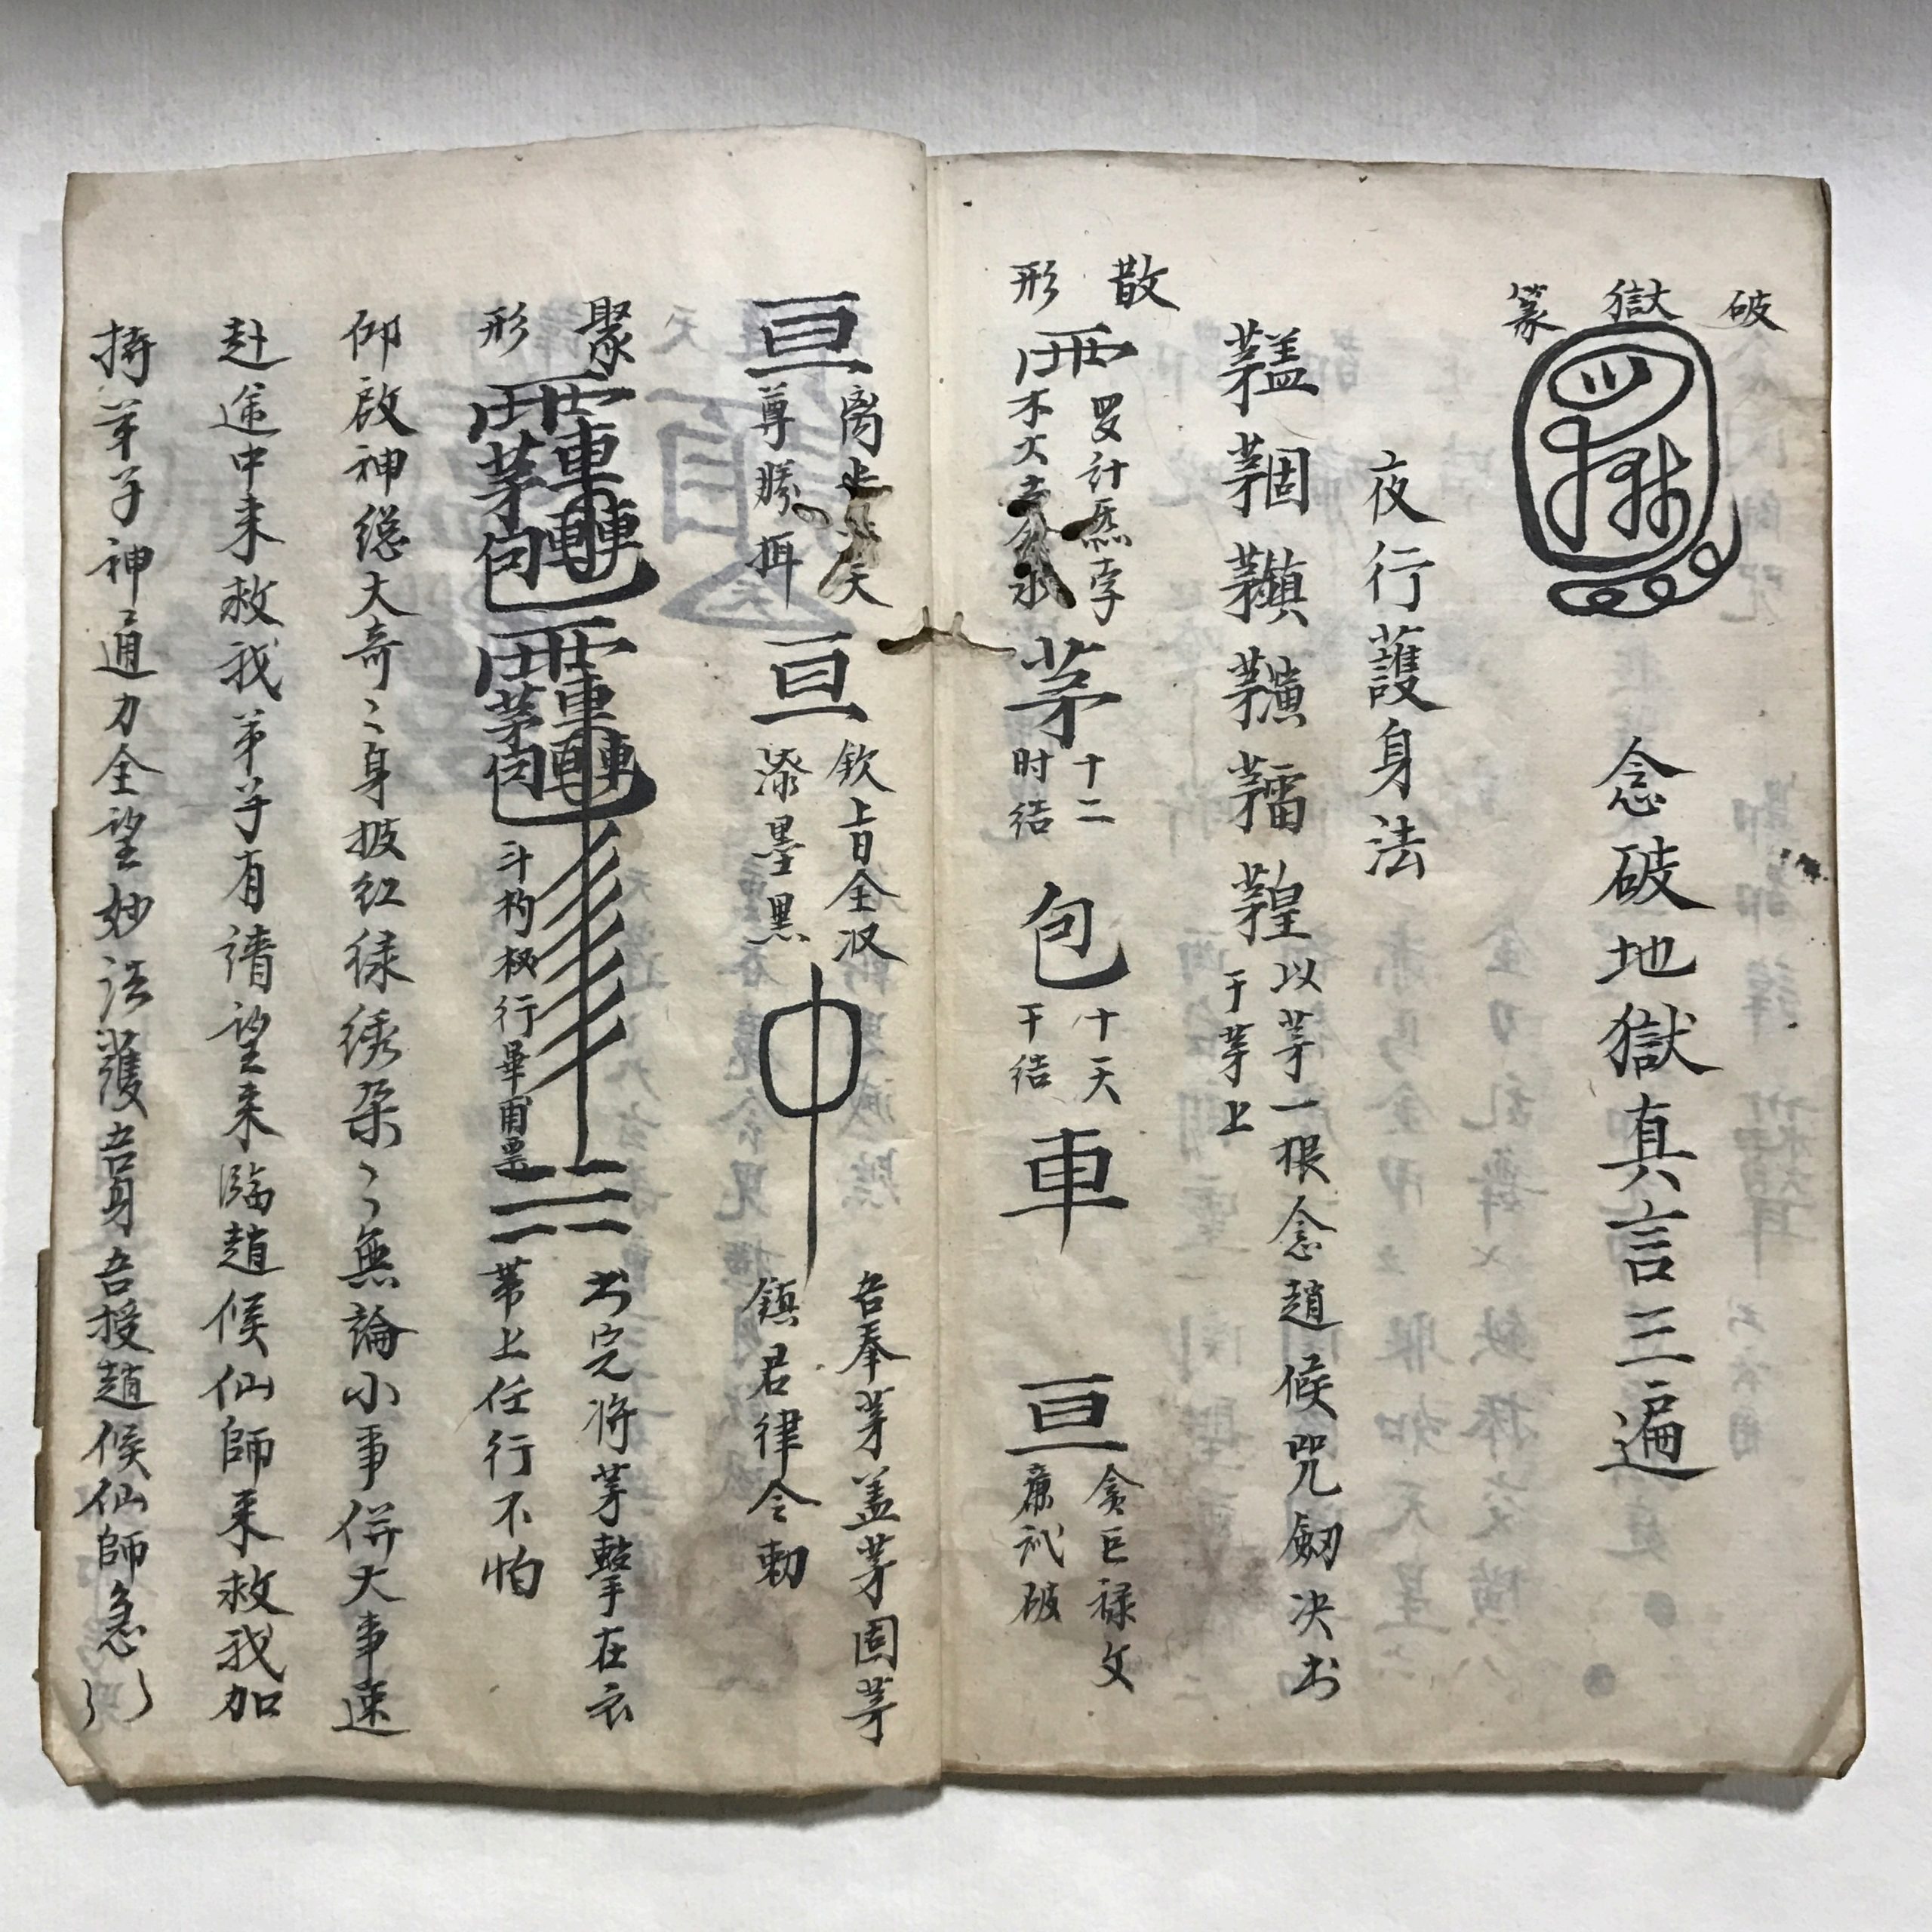 破獄篆
念破地獄真言三遍
夜行護身法
以茅一根念趙候咒劍决书
于茅上
散形
罗計炁孛
木火土金水
茅
十二
时结
包
十天
干结
車
亘
貪巨禄文
廉武破
亘
尊勝
亘
欽旨全
漆墨黑
吾奉茅盖茅固茅
鎮君律令勅
聚形
斗杓秘行畢甫票
书完将茅拏在衣
帶上任行不怕
仰啟神繧大奇〻身披红緑綉朵〻無論小事併大事速
赴途中来救我弟子有請望来臨趙候仙師来救我加
持弟子神通力全望妙法護吾身吾授趙候仙師急〻